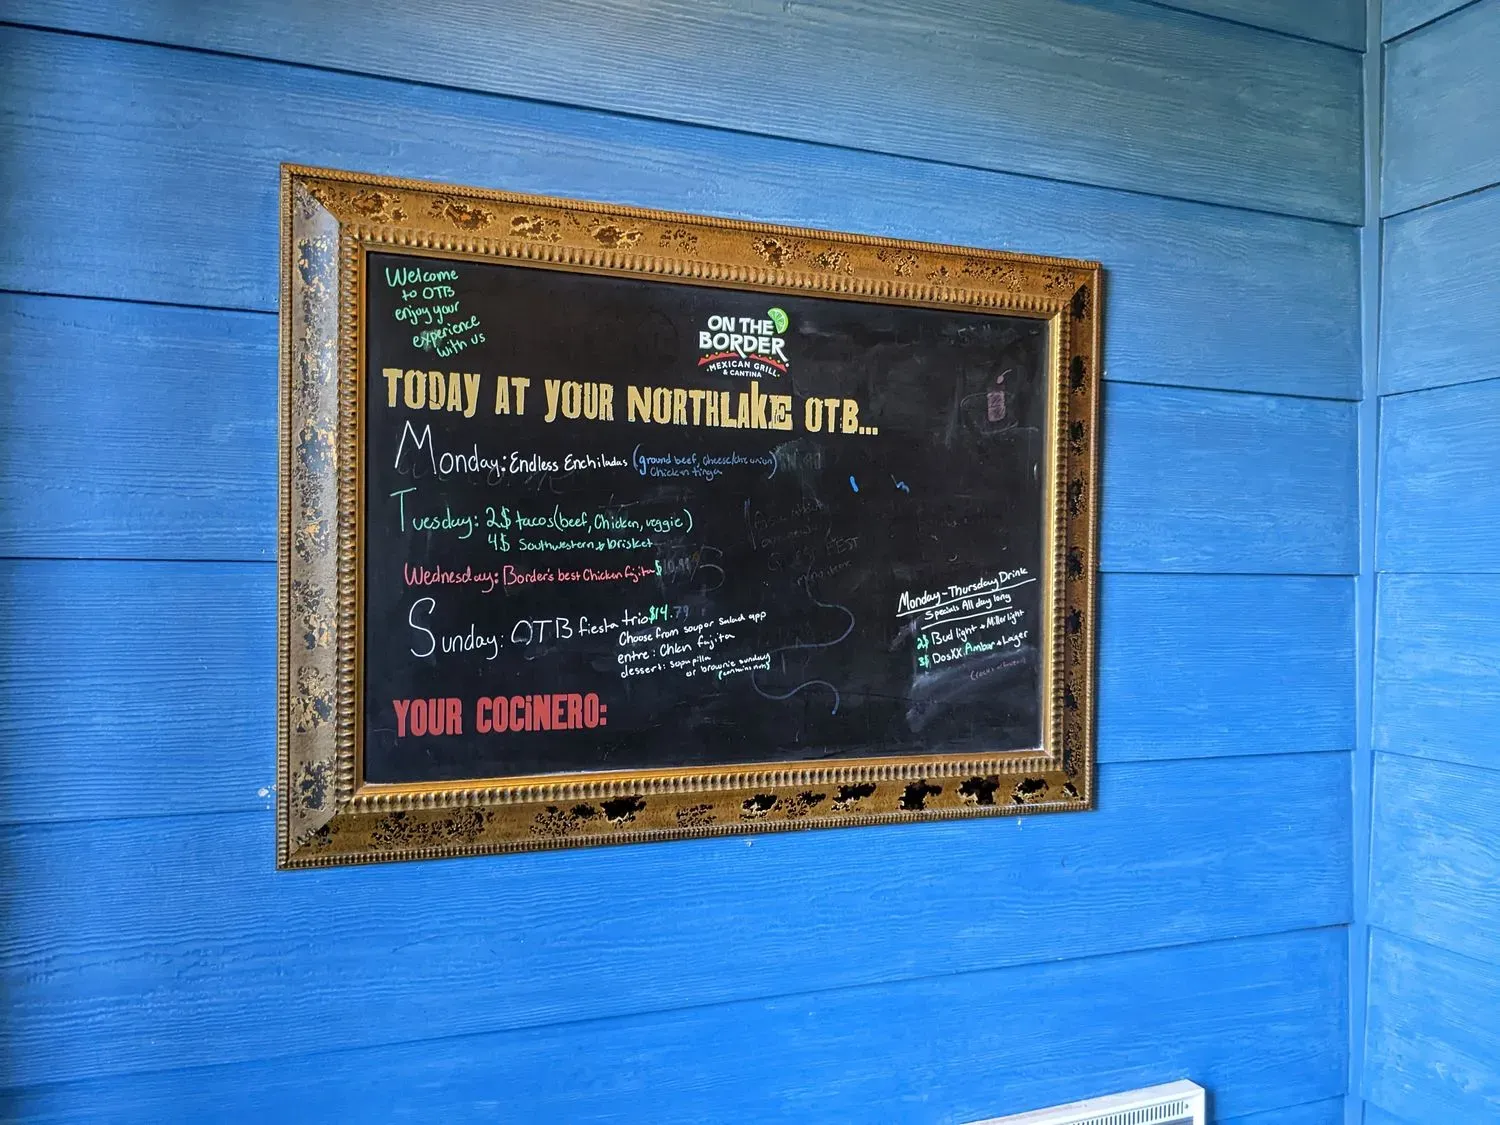 Welcome
to OTB
enjoy your
experience
with us
ON THE
BORDER
MEXICAN GRILL
& CANTINA
TODAY AT YOUR NORTHLAKE OTB...
Monday: Endless Enchiladas (ground beef, Cheese/chz onion)
Chicken tinga
Tuesday: 2$ tacos (beef, Chicken, veggie)
4$ Southwestern & brisket
Wednesday: Border's best Chicken fajita $
Sunday: OTB fiesta trio $14.79
Choose from soup or salad app
entre: Chkn fajita
dessert: sopapilla
or brownie sunday
(contains nuts)
Monday-Thursday Drink
Specials All day long
2$ Bud light & Miller light
3$ DosXX Amber & Lager
YOUR COCINERO: